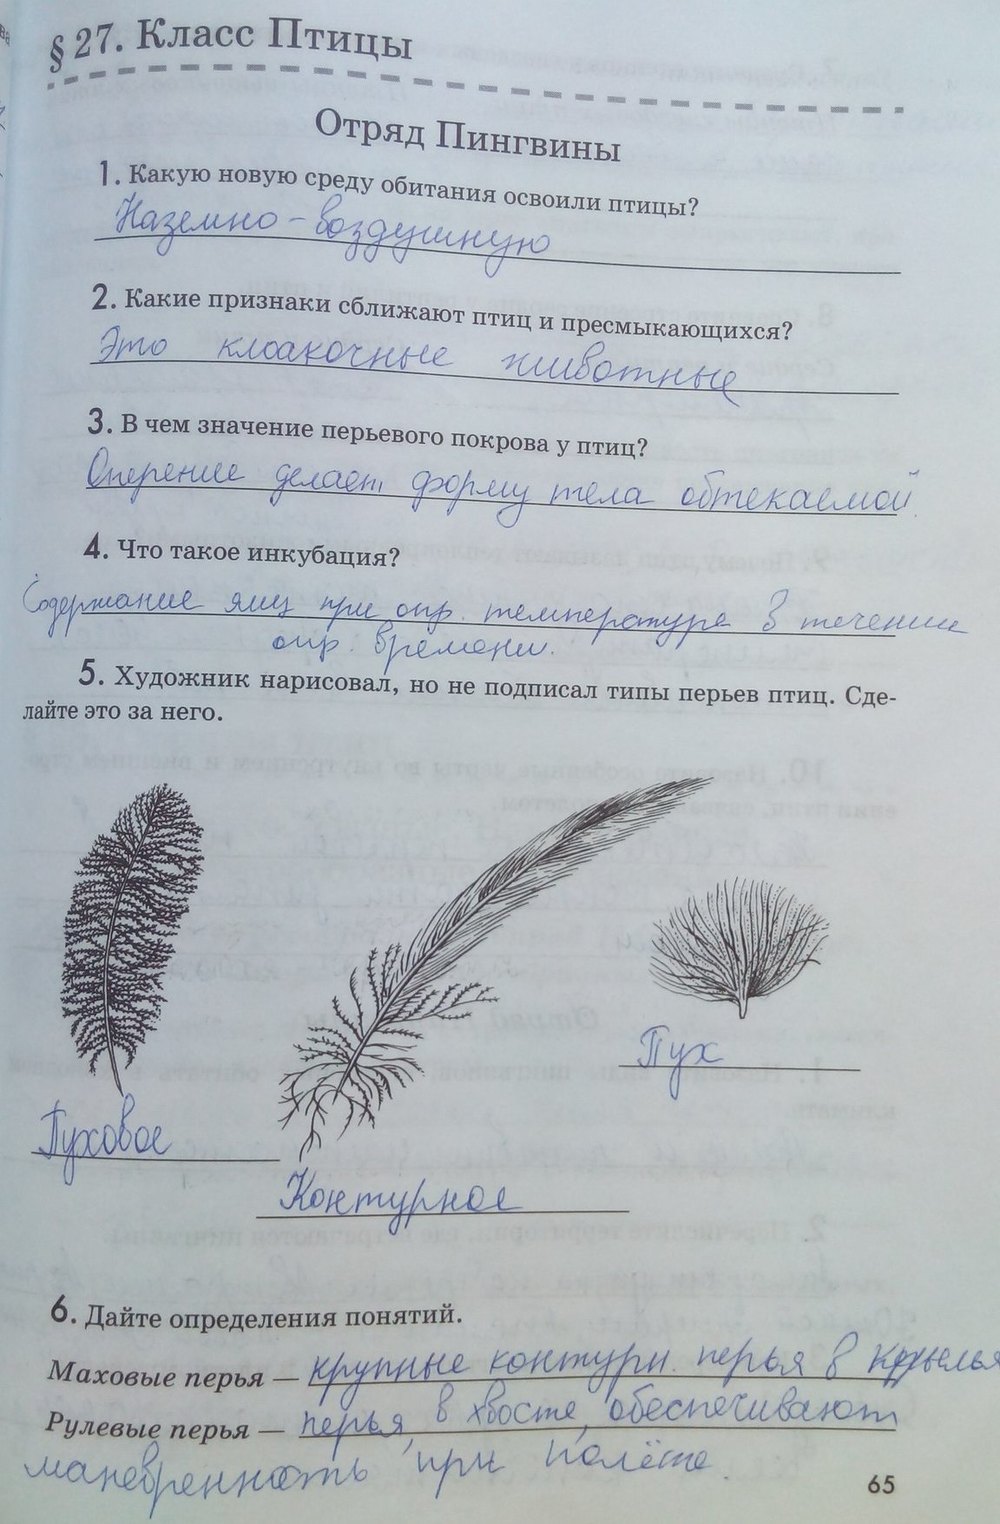 § 27. Класс Птицы
Отряд Пингвины
1. Какую новую среду обитания освоили птицы?
Наземно-воздушную
2. Какие признаки сближают птиц и пресмыкающихся?
Это клоакочные животные
3. В чем значение перьевого покрова у птиц?
Оперение делает форму тела обтекаемой
4. Что такое инкубация?
Содержание яиц при опр. температуре в течении
опр. времени.
5. Художник нарисовал, но не подписал типы перьев птиц. Сде-
лайте это за него.
Пух
Пуховое
Контурное
6. Дайте определения понятий.
Маховые перья — крупные контурн. перья в крылья
Рулевые перья — перья в хвосте, обеспечивают
маневренность при полёте.
65